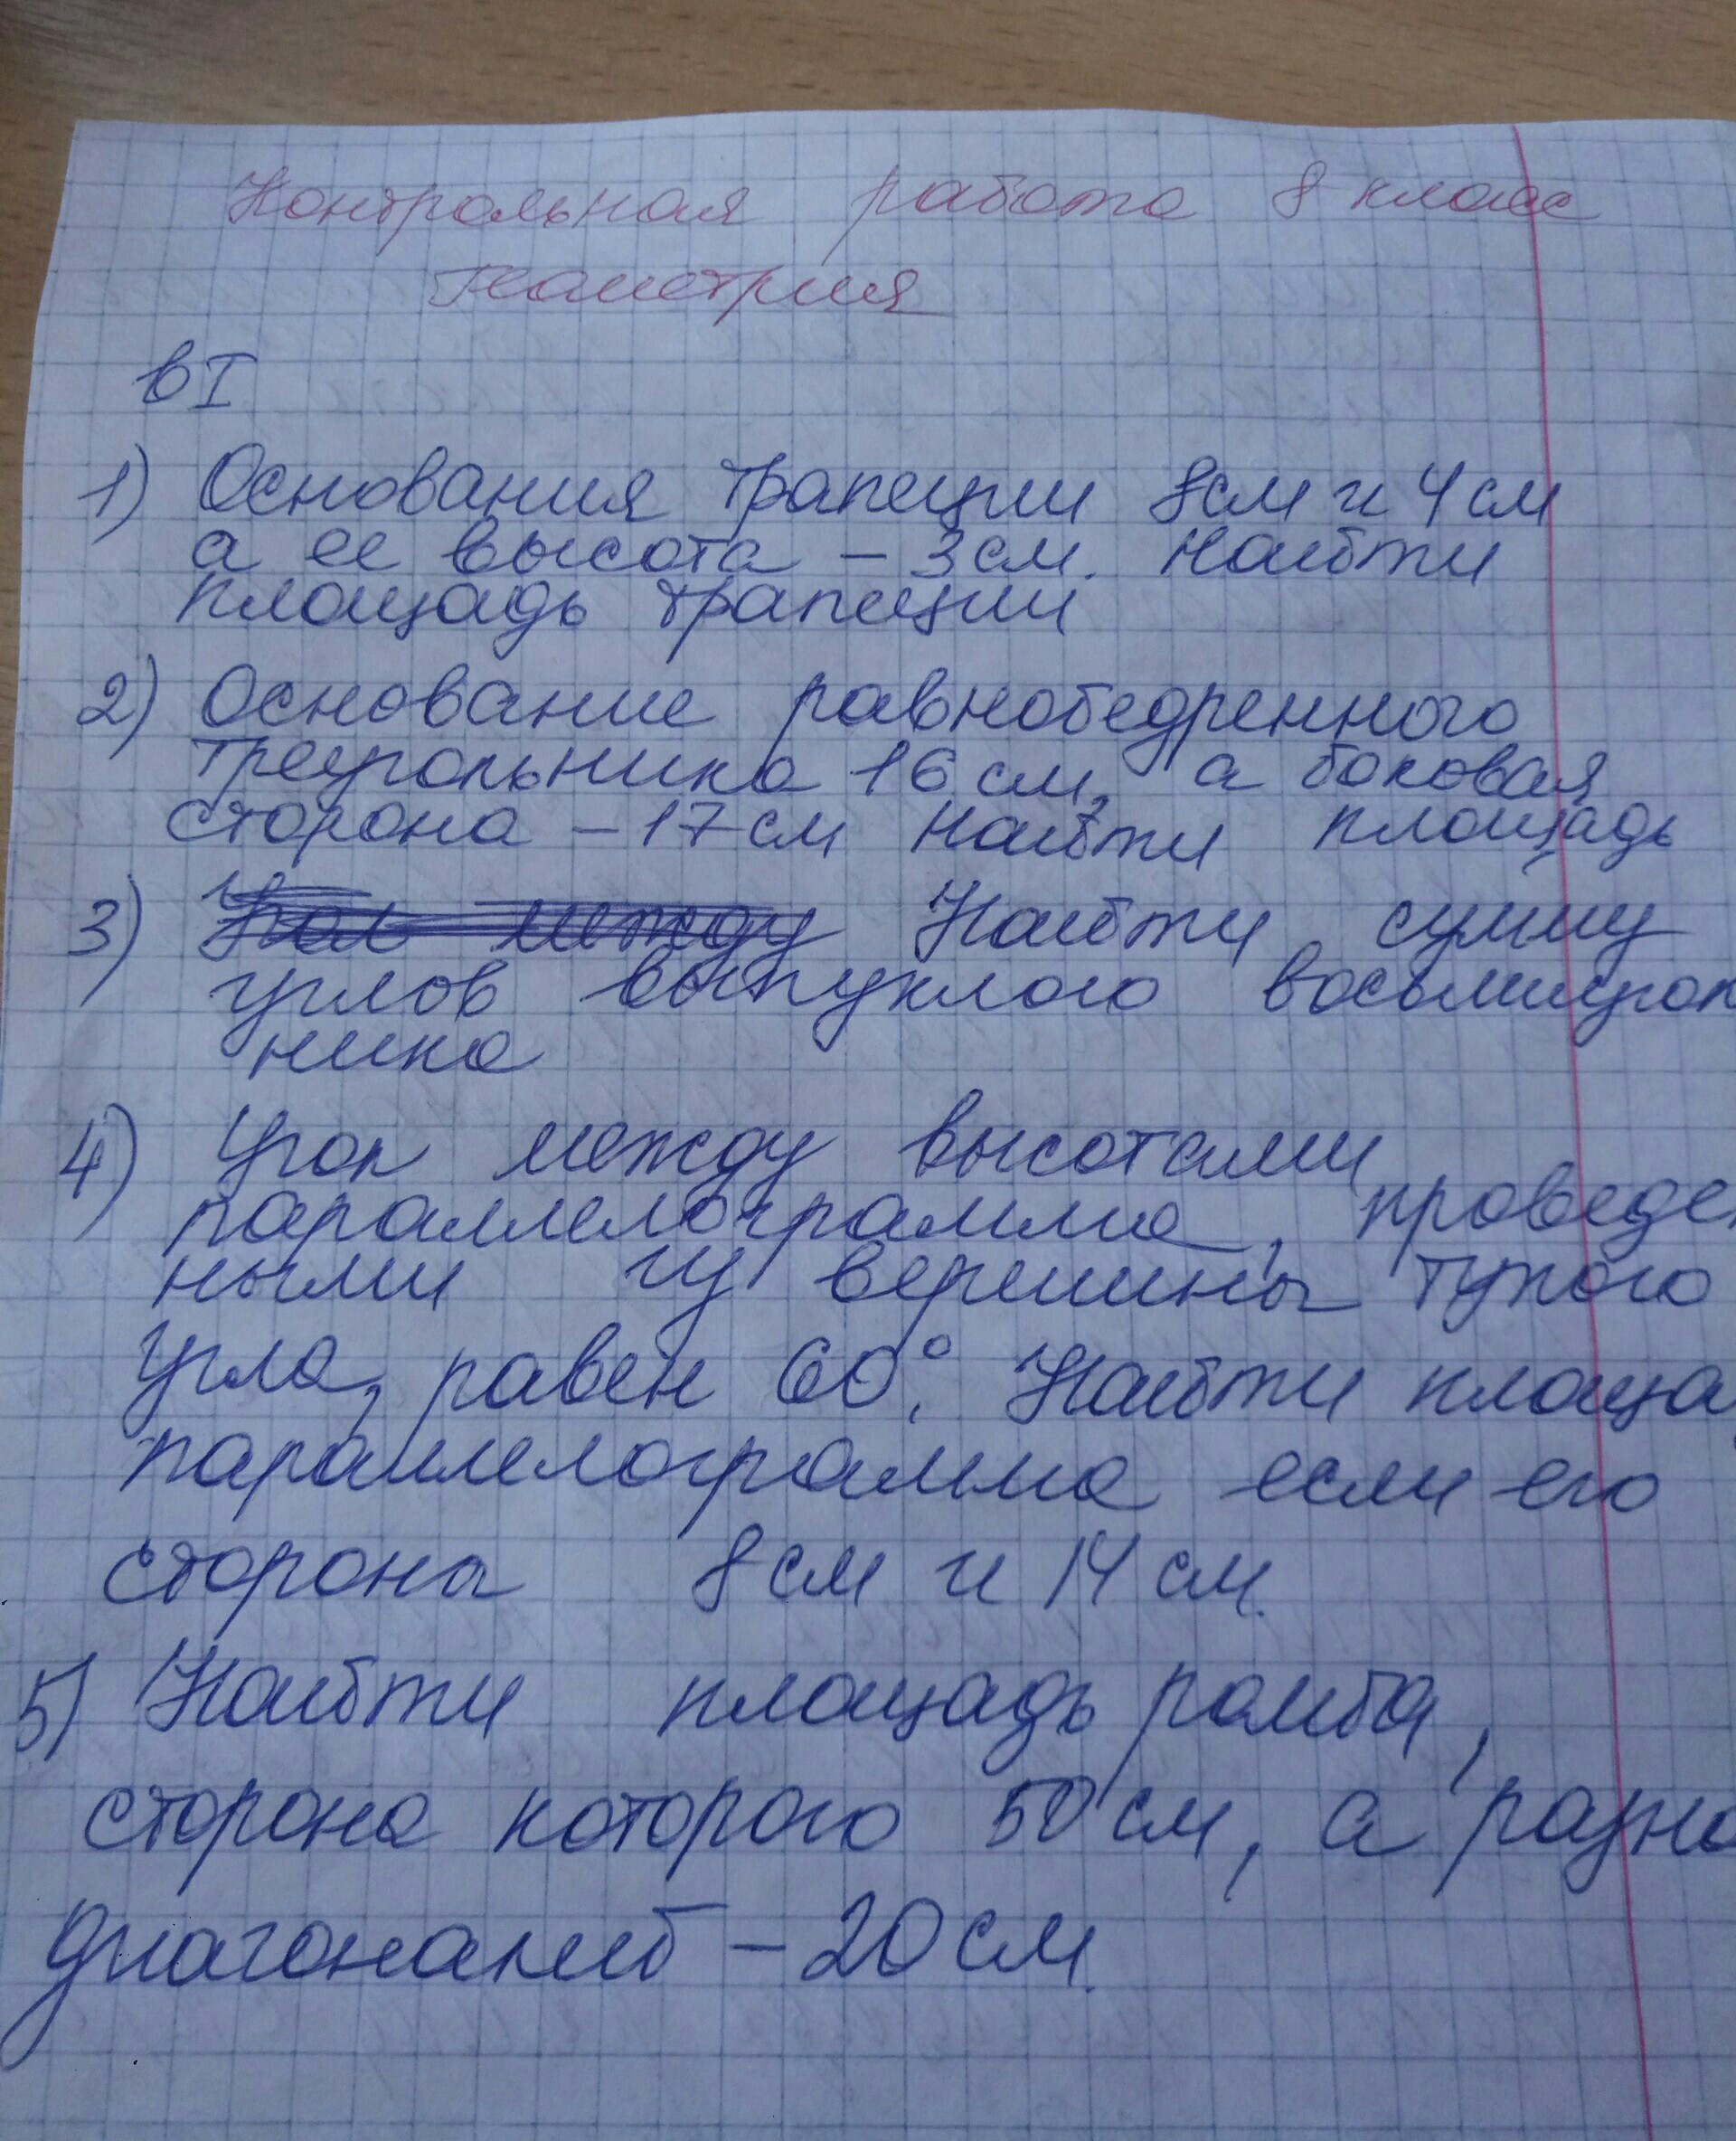 Контрольная работа 8 класс
геометрия
в I
1) Основания трапеции 8см и 4см
а ее высота – 3см. Найти
площадь трапеции
2) Основание равнобедренного
треугольника 16 см, а боковая
сторона – 17 см Найти площадь
3) Угол между Найти сумму
углов выпуклого восьмиугол
ника
4) Угол между высотами
параллелограмма, проведен
ными из вершины тупого
угла, равен 60°. Найти площа
параллелограмма если его
стороны 8 см и 14 см.
5) Найти площадь ромба,
сторона которого 50 см, а разно
диагоналей – 20 см.